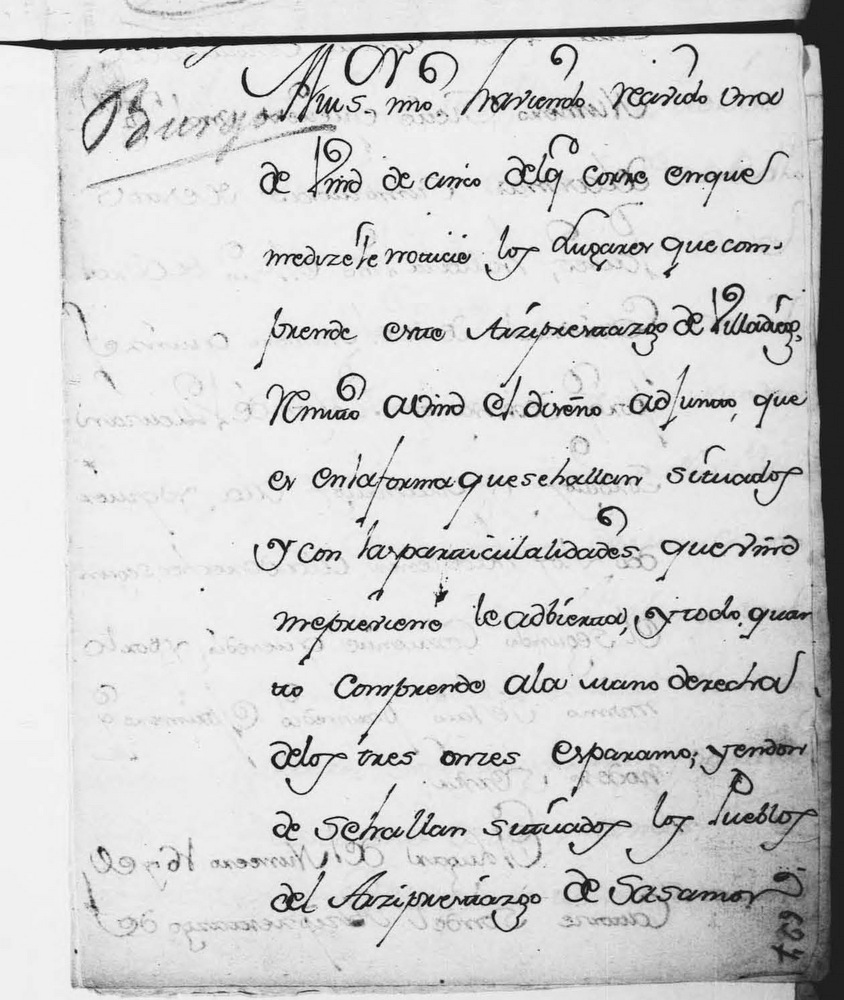 Burgos
Mui S. mio haviendo Recivido una
de Vmd de cinco del q. corre en que
me dize le noticie los Lugares que com-
prende este Arziprestazgo de Villadiego,
Remito a Vmd el diseño adjunto, que
es en la forma que se hallan situados
y con las particulalidades que Vmd
me previene le adbierta, y todo quan
to comprende a la mano derecha
de los tres onzes es paramo; y en don
de se hallan situados los Pueblos
del Arziprestazgo de Sasamon